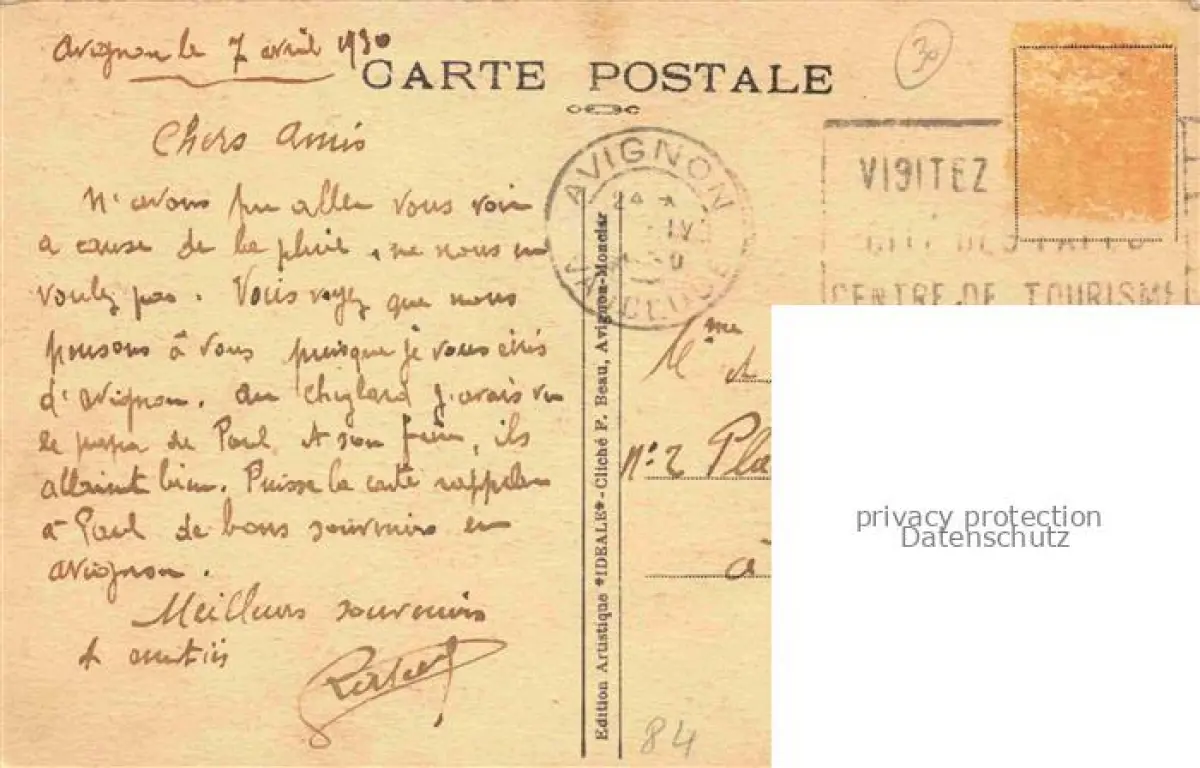 Avignon le 7 avril 1930
CARTE POSTALE
30
Chers Amis
N'avons pu aller vous voir
a cause de la pluie, ne nous en
voulez pas. Vous voyez que nous
pensons à vous puisque je vous écris
d'Avignon. Au Cheylard j'avais vu
le papa de Paul et son frère, ils
allaient bien. Puisse la carte rappeler
à Paul de bons souvenirs en
Avignon.
Meilleurs souvenirs
et amitiés
AVIGNON
IV
VAUCLUSE
VISITEZ
CITÉ DES PAPES
CENTRE DE TOURISME
Edition Artistique *IDEALE* - Cliché P. Beau, Avignon-Monclar
Mme et
N°: 2 Pla
à
84
privacy protection
Datenschutz